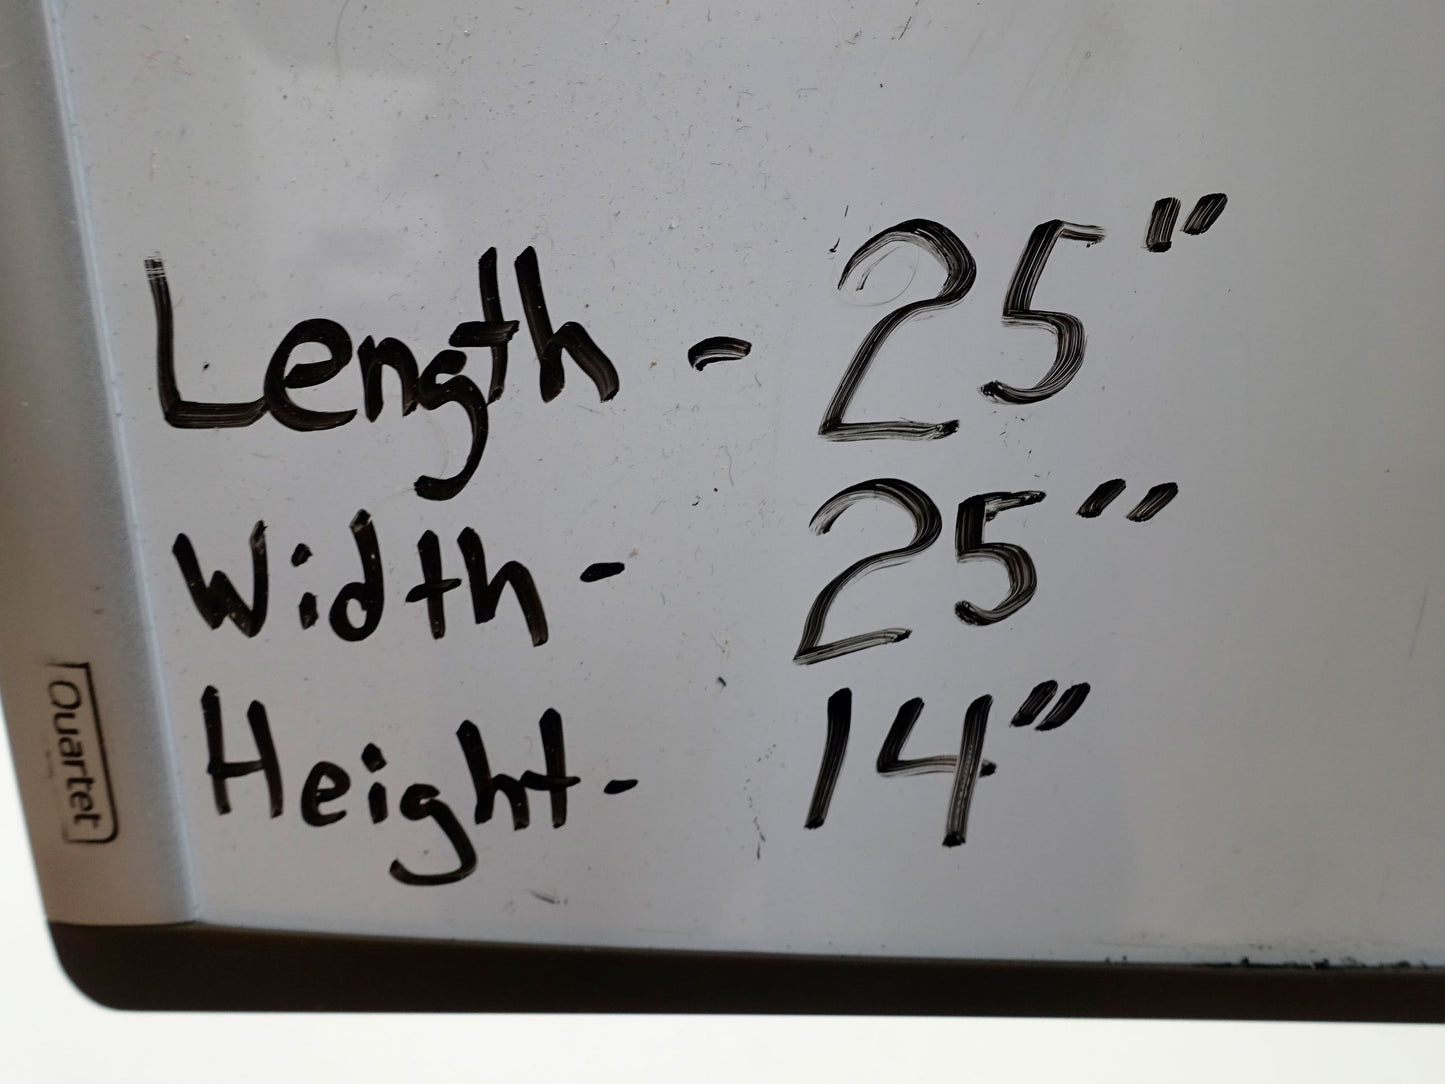 Length - 25"
Width - 25"
Height - 14"
Quartet